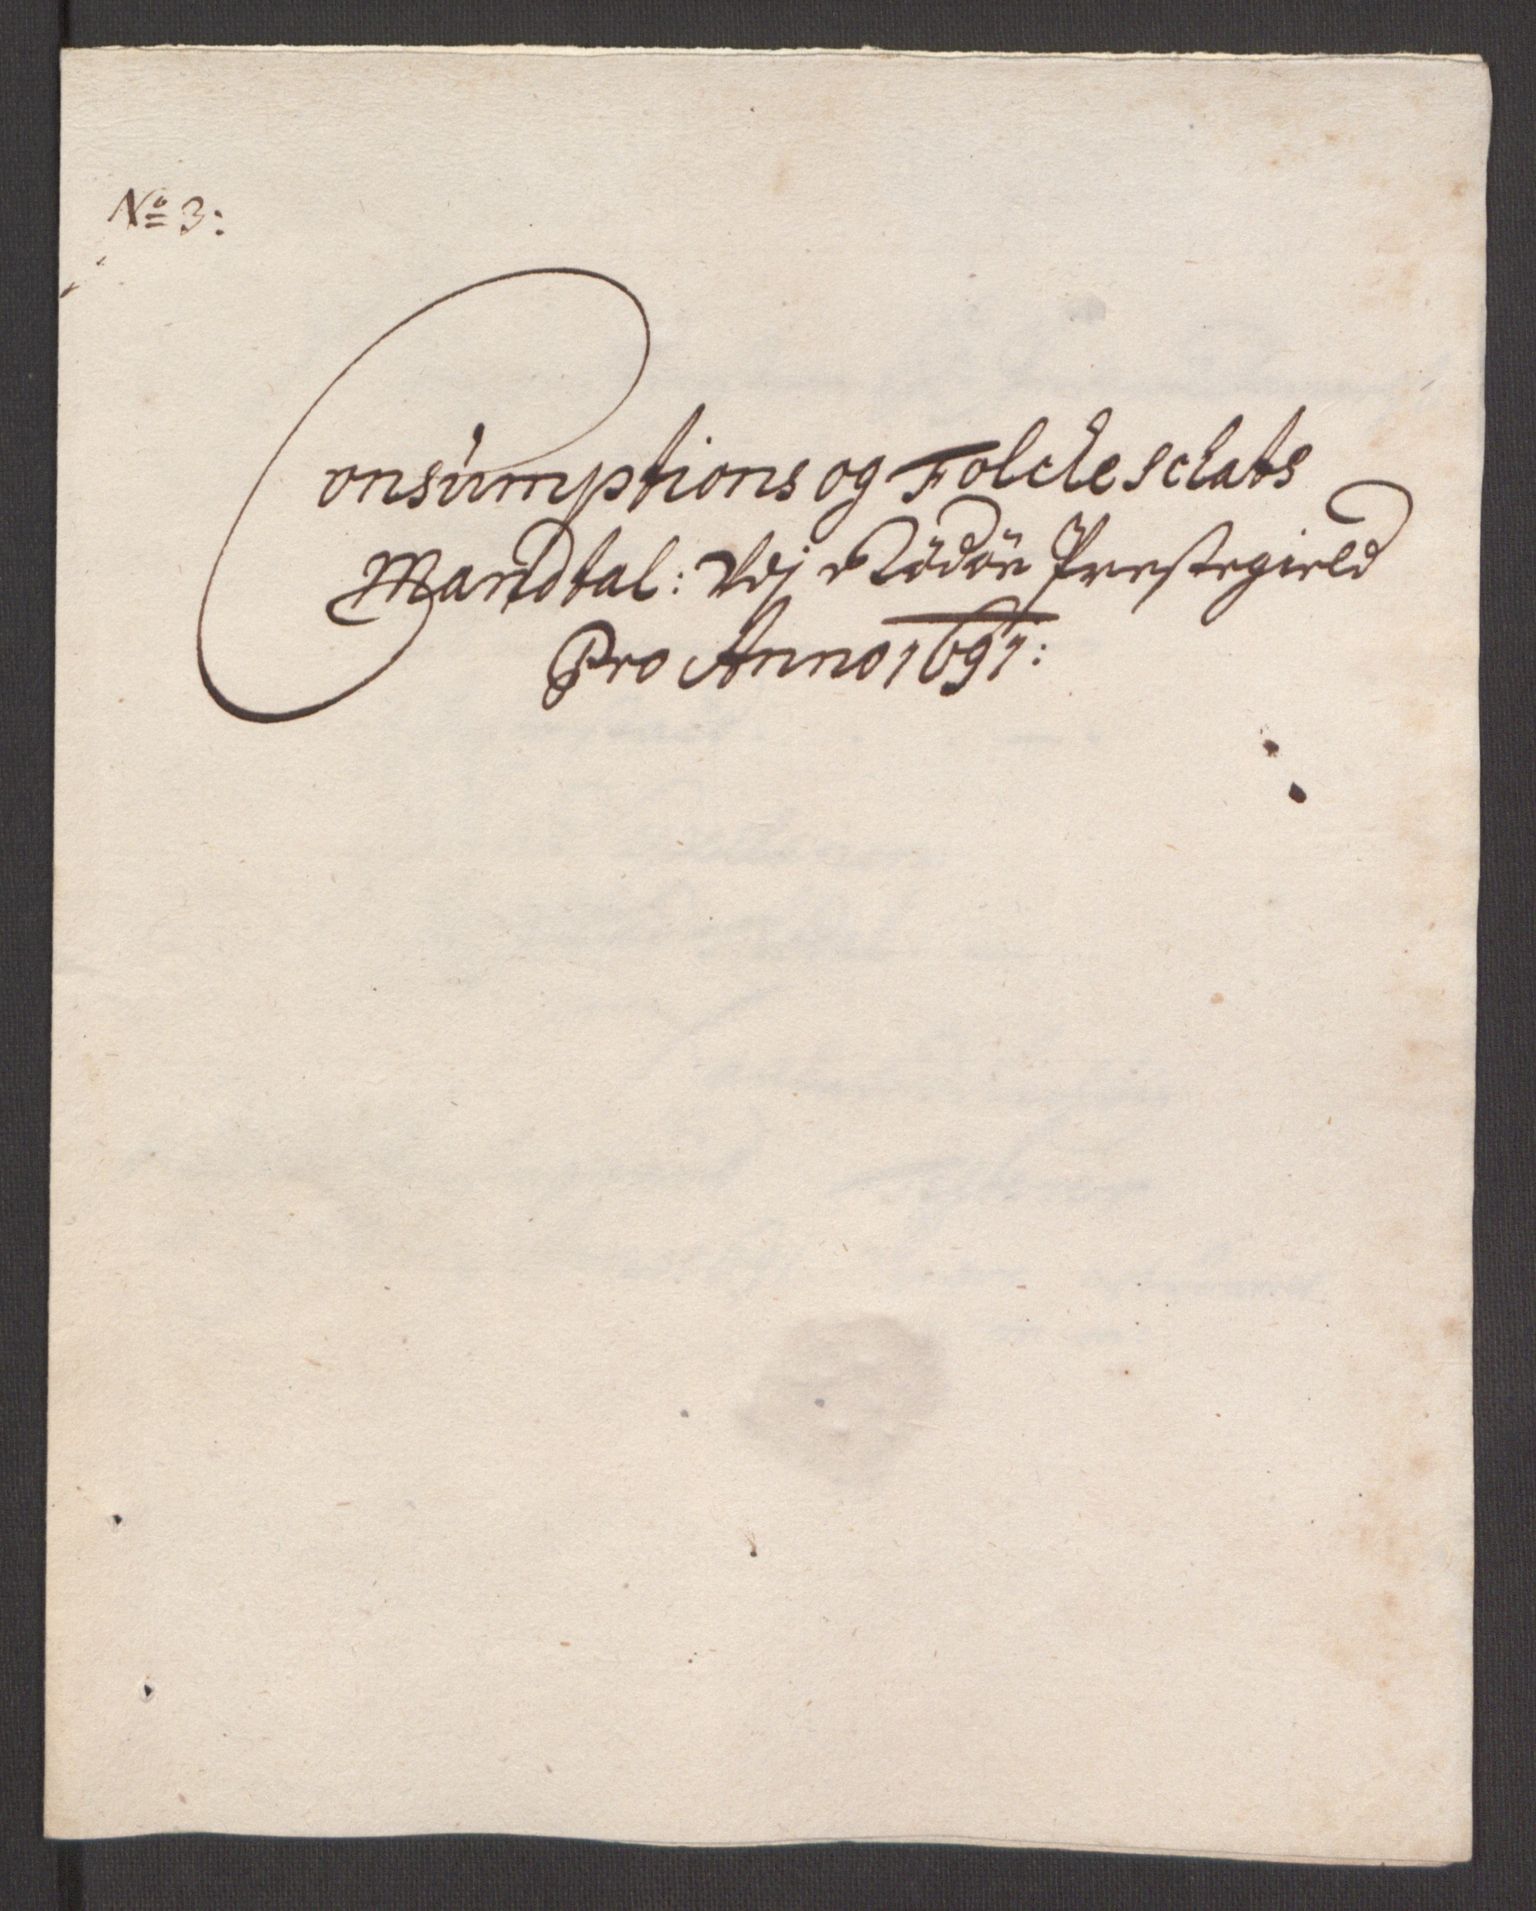 No 3:
Consumptions og Folckesclats
Mandtal: Udj Rödöe Prestegield
Pro Anno 1691: